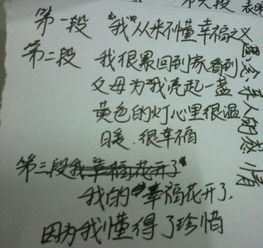 第一段 "我"从来不懂幸福之义
第二段 我很累回到家看到
父母为我亮起一盏
黄色的灯心里很温
暖、很幸福
第三段我幸福花开了
我的"幸福花开了,
因为我懂得了珍惜